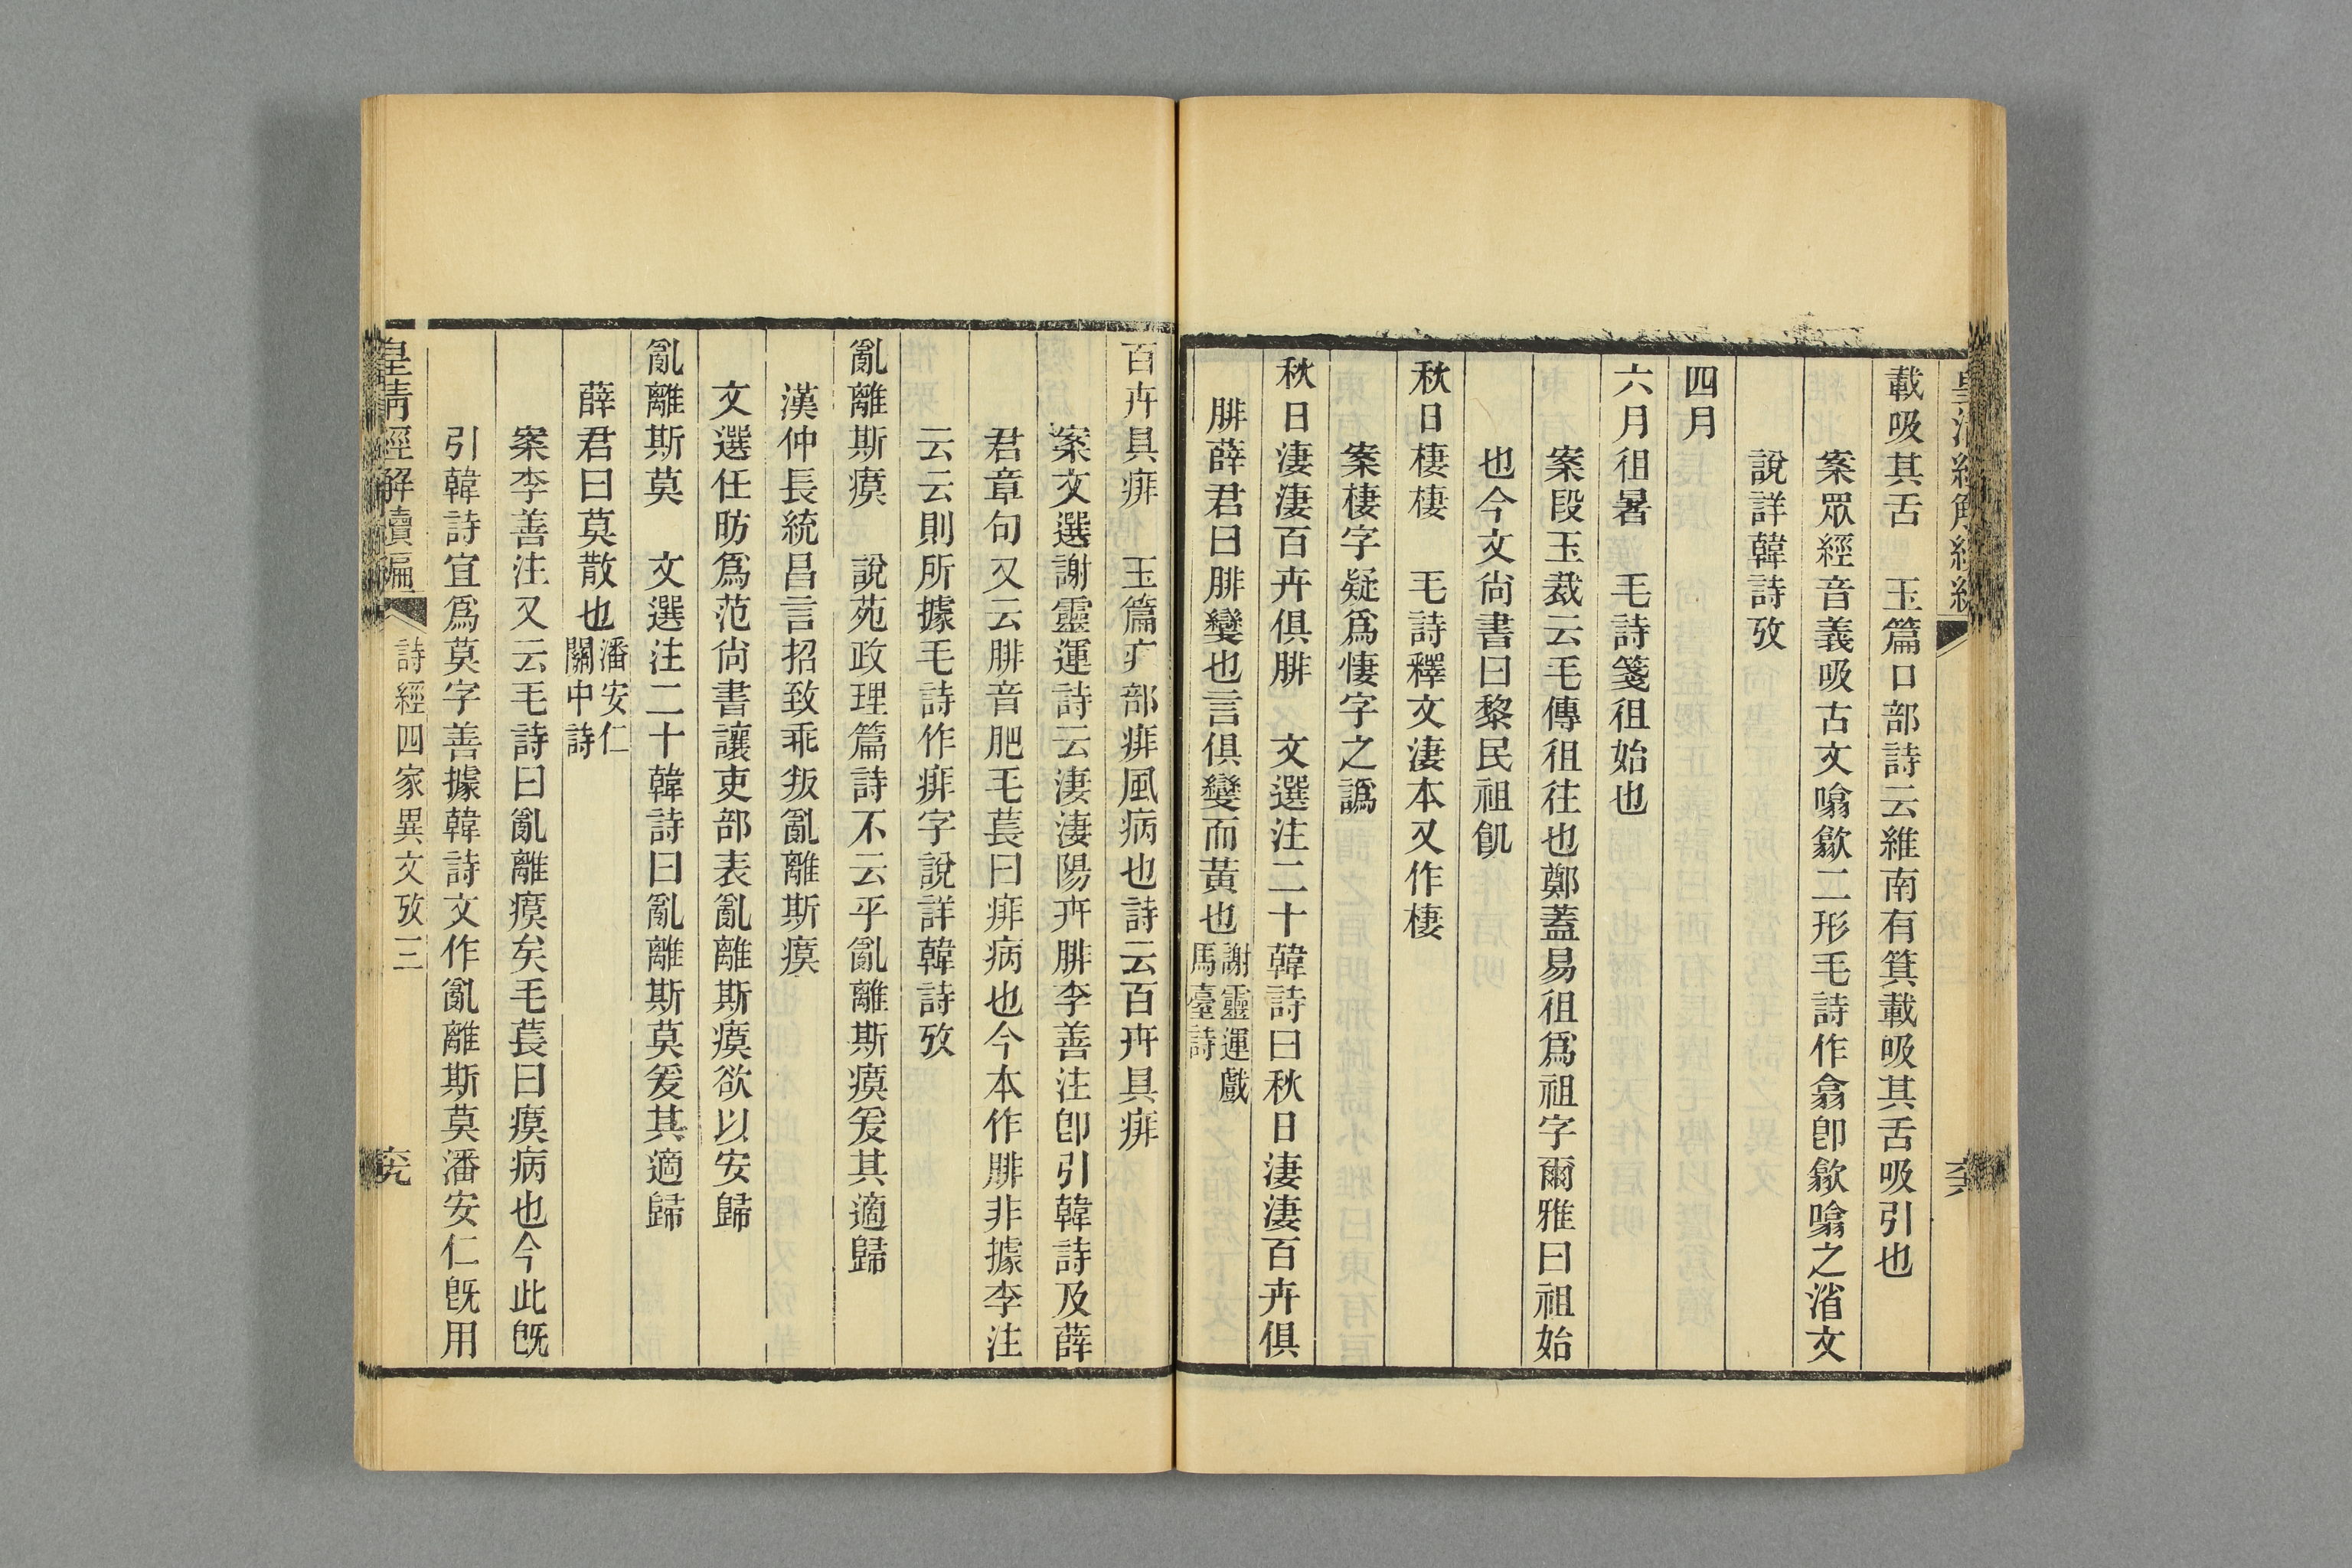 載吸其舌　玉篇口部詩云維南有箕載吸其舌吸引也
案眾經音義吸古文噏歙二形毛詩作翕卽歙噏之消文
說詳韓詩攷
四月
六月徂暑　毛詩箋徂始也
案段玉裁云毛傳徂往也鄭蓋易徂爲祖字爾雅曰祖始
也今文尙書曰黎民祖飢
秋日棲棲　毛詩釋文淒本又作棲
案棲字疑爲悽字之譌
秋日淒淒百卉俱腓　文選注二十韓詩曰秋日淒淒百卉俱
腓薛君曰腓變也言俱變而黃也謝靈運戲馬臺詩
百卉具痱　玉篇疒部痱風病也詩云百卉具痱
案文選謝靈運詩云淒淒陽卉腓李善注卽引韓詩及薛
君章句又云腓音肥毛萇曰痱病也今本作腓非據李注
云云則所據毛詩作痱字說詳韓詩攷
亂離斯瘼　說苑政理篇詩不云乎亂離斯瘼爰其適歸
漢仲長統昌言招致乖叛亂離斯瘼
文選任昉爲范尙書讓吏部表亂離斯瘼欲以安歸
亂離斯莫　文選注二十韓詩曰亂離斯莫爰其適歸
薛君曰莫散也潘安仁關中詩
案李善注又云毛詩曰亂離瘼矣毛萇曰瘼病也今此旣
引韓詩宜爲莫字善據韓詩文作亂離斯莫潘安仁旣用
皇淸經解續編　詩經四家異文攷三